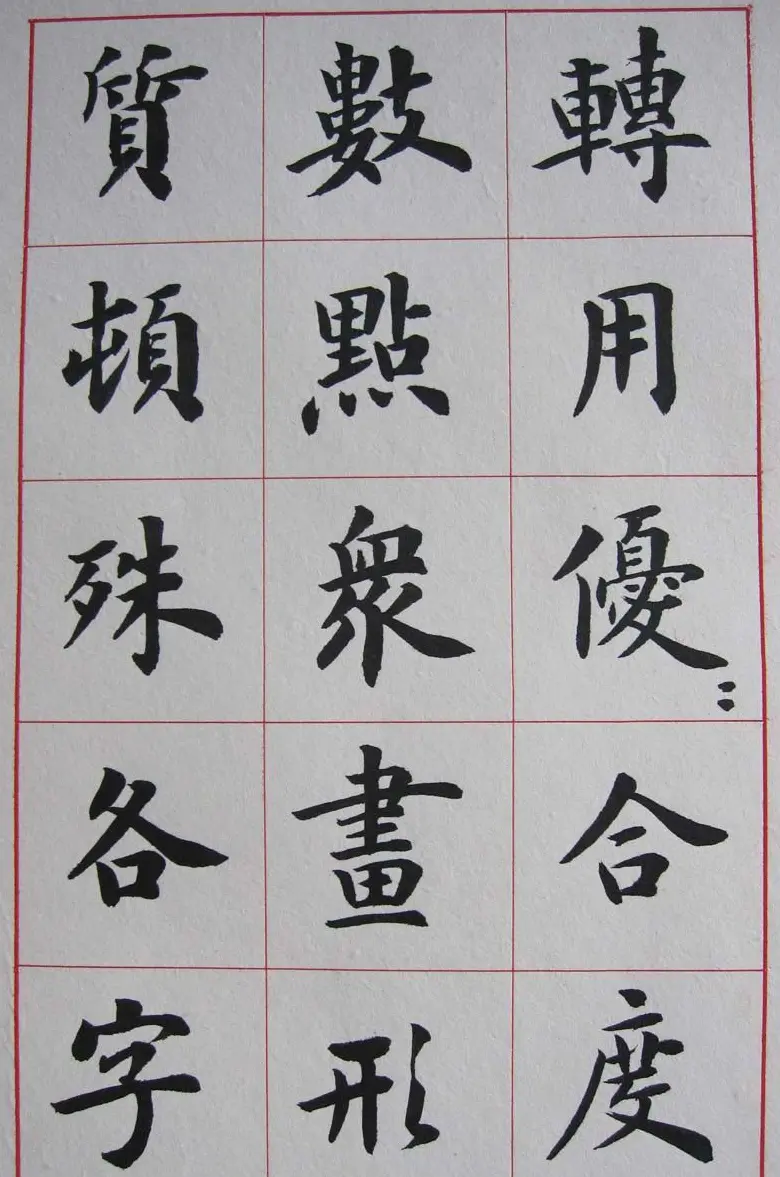 轉用優合度
數點衆畫形
質頓殊各字